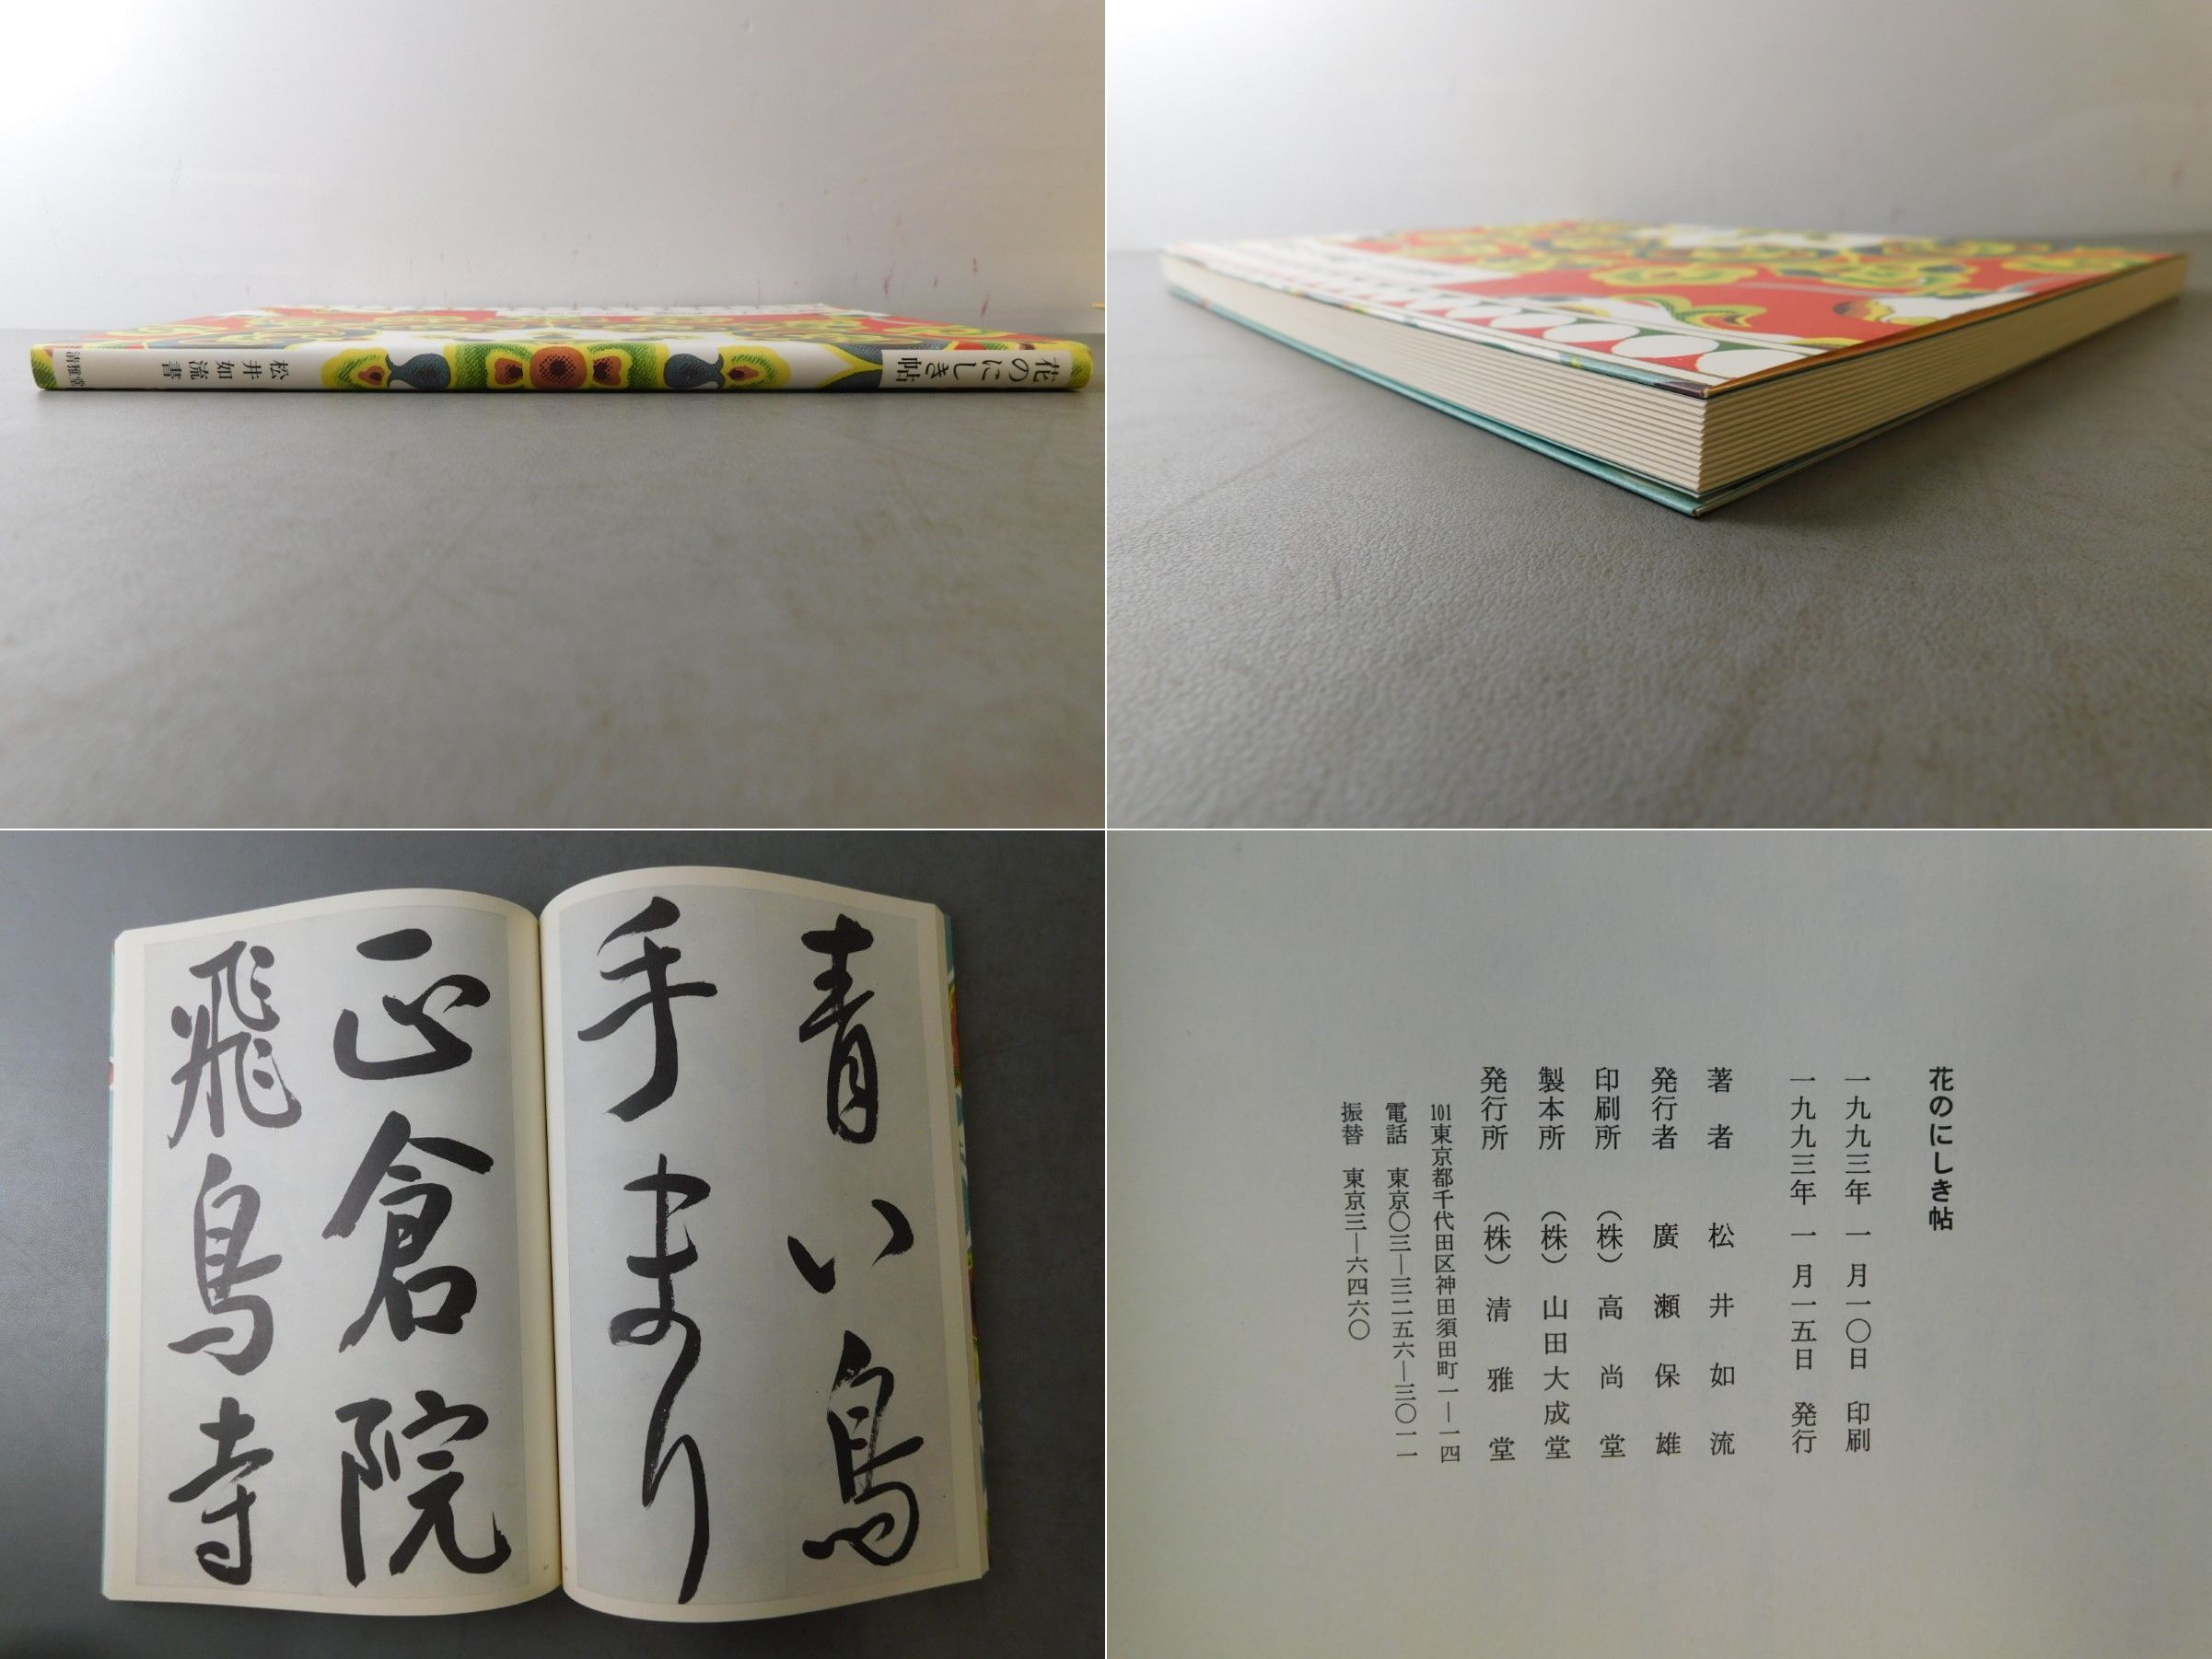 花のにしき帖
松井如流書
清雅堂
青い鳥
手まり
正倉院
飛鳥寺
花のにしき帖
一九九三年 一月一〇日 印刷
一九九三年 一月一五日 発行
著者 松井如流
発行者 廣瀬保雄
印刷所 （株）高尚堂
製本所 （株）山田大成堂
発行所 （株）清雅堂
101東京都千代田区神田須田町一—一四
電話 東京〇三—三二五六—三〇一一
振替 東京三—六四六〇